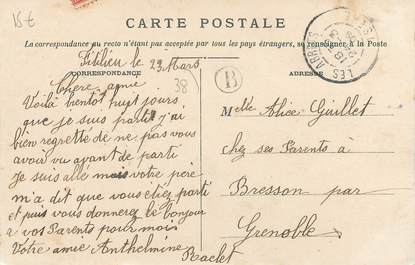 15€
CARTE POSTALE
La correspondance au recto n'étant pas acceptée par tous les pays étrangers, se renseigner à la Poste
CORRESPONDANCE
ADRESSE
38
B
LES ABRETS
le 29 Mars
Chere amie
Voilà bientot huyt jours
que je suis parti j'ai
bien regretté de ne pas vous
avoir vu avant de parti
Je suis allé mais votre père
m'a dit que vous étiez parti
et puis vous donnerez le bonjour
a vos Parents pour moi
Votre amie Anthelmine
Raclet
Melle Alice Guillet
chez ses Parents à
Bresson par
Grenoble